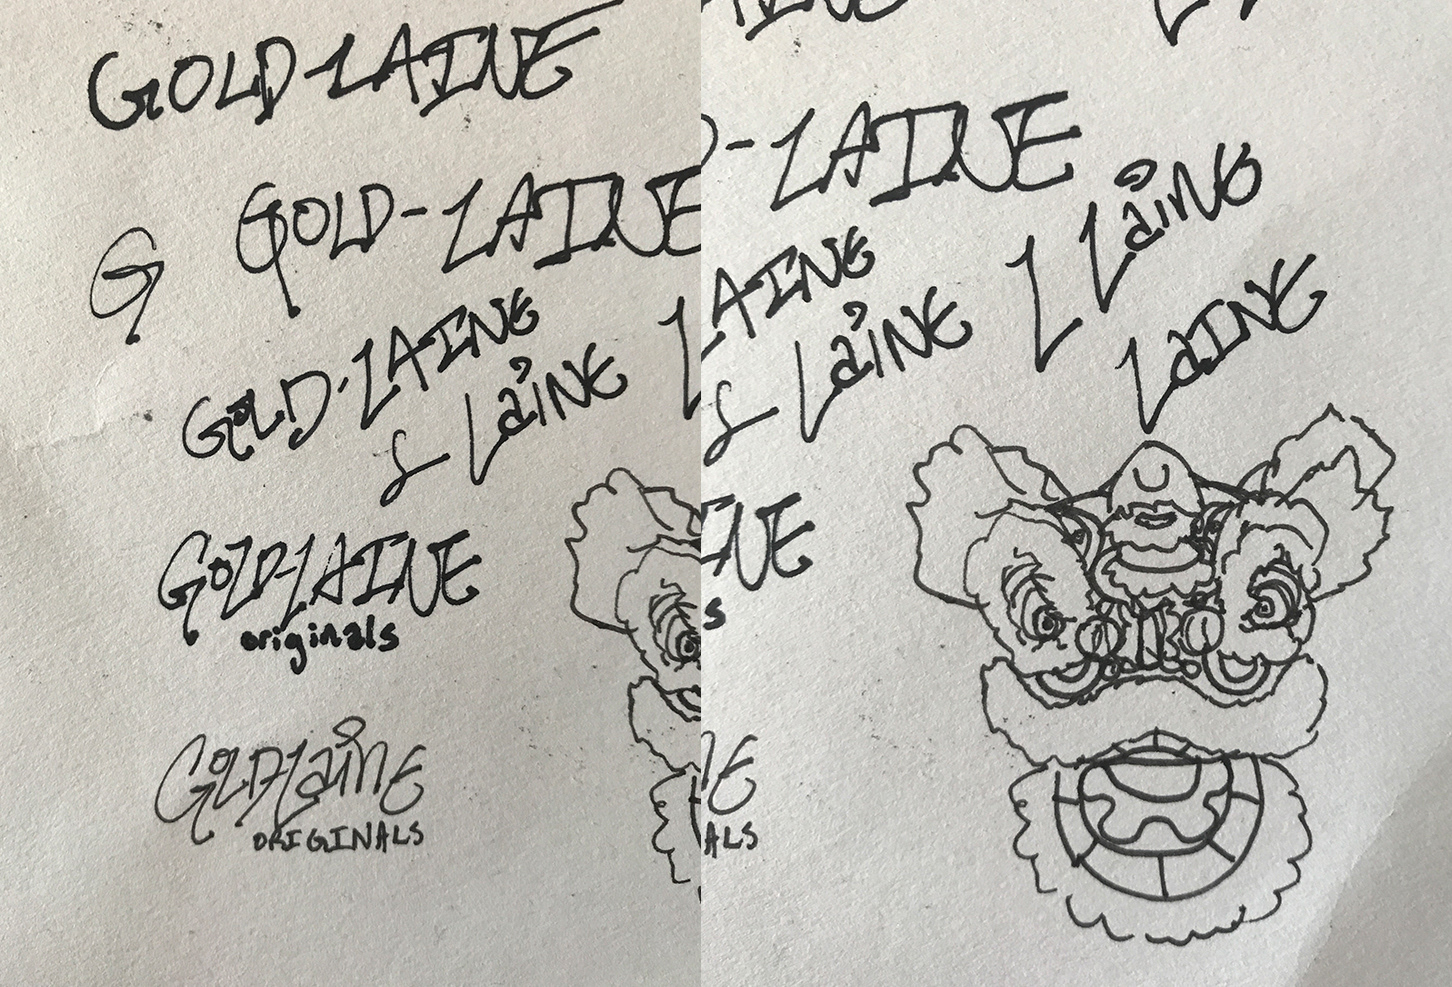 GOLD-LAINE
G GOLD-LAINE
GOLD-LAINE
L LaiNE L
GOLD-LAINE
originals
GOLDLaiNE
ORIGINALS
-LAINE
L LaiNG
LAINE
L LaiNE
LAINE
INE
s
NE
ALS